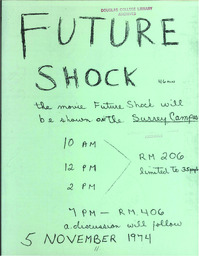 DOUGLAS COLLEGE LIBRARY
ARCHIVES
FUTURE
SHOCK
the movie Future Shock will
be shown on the Surrey Campus
10 AM
12 PM
2 PM
RM 206
limited to 35 people
7 PM — RM. 406
a discussion will follow
5 NOVEMBER 1974